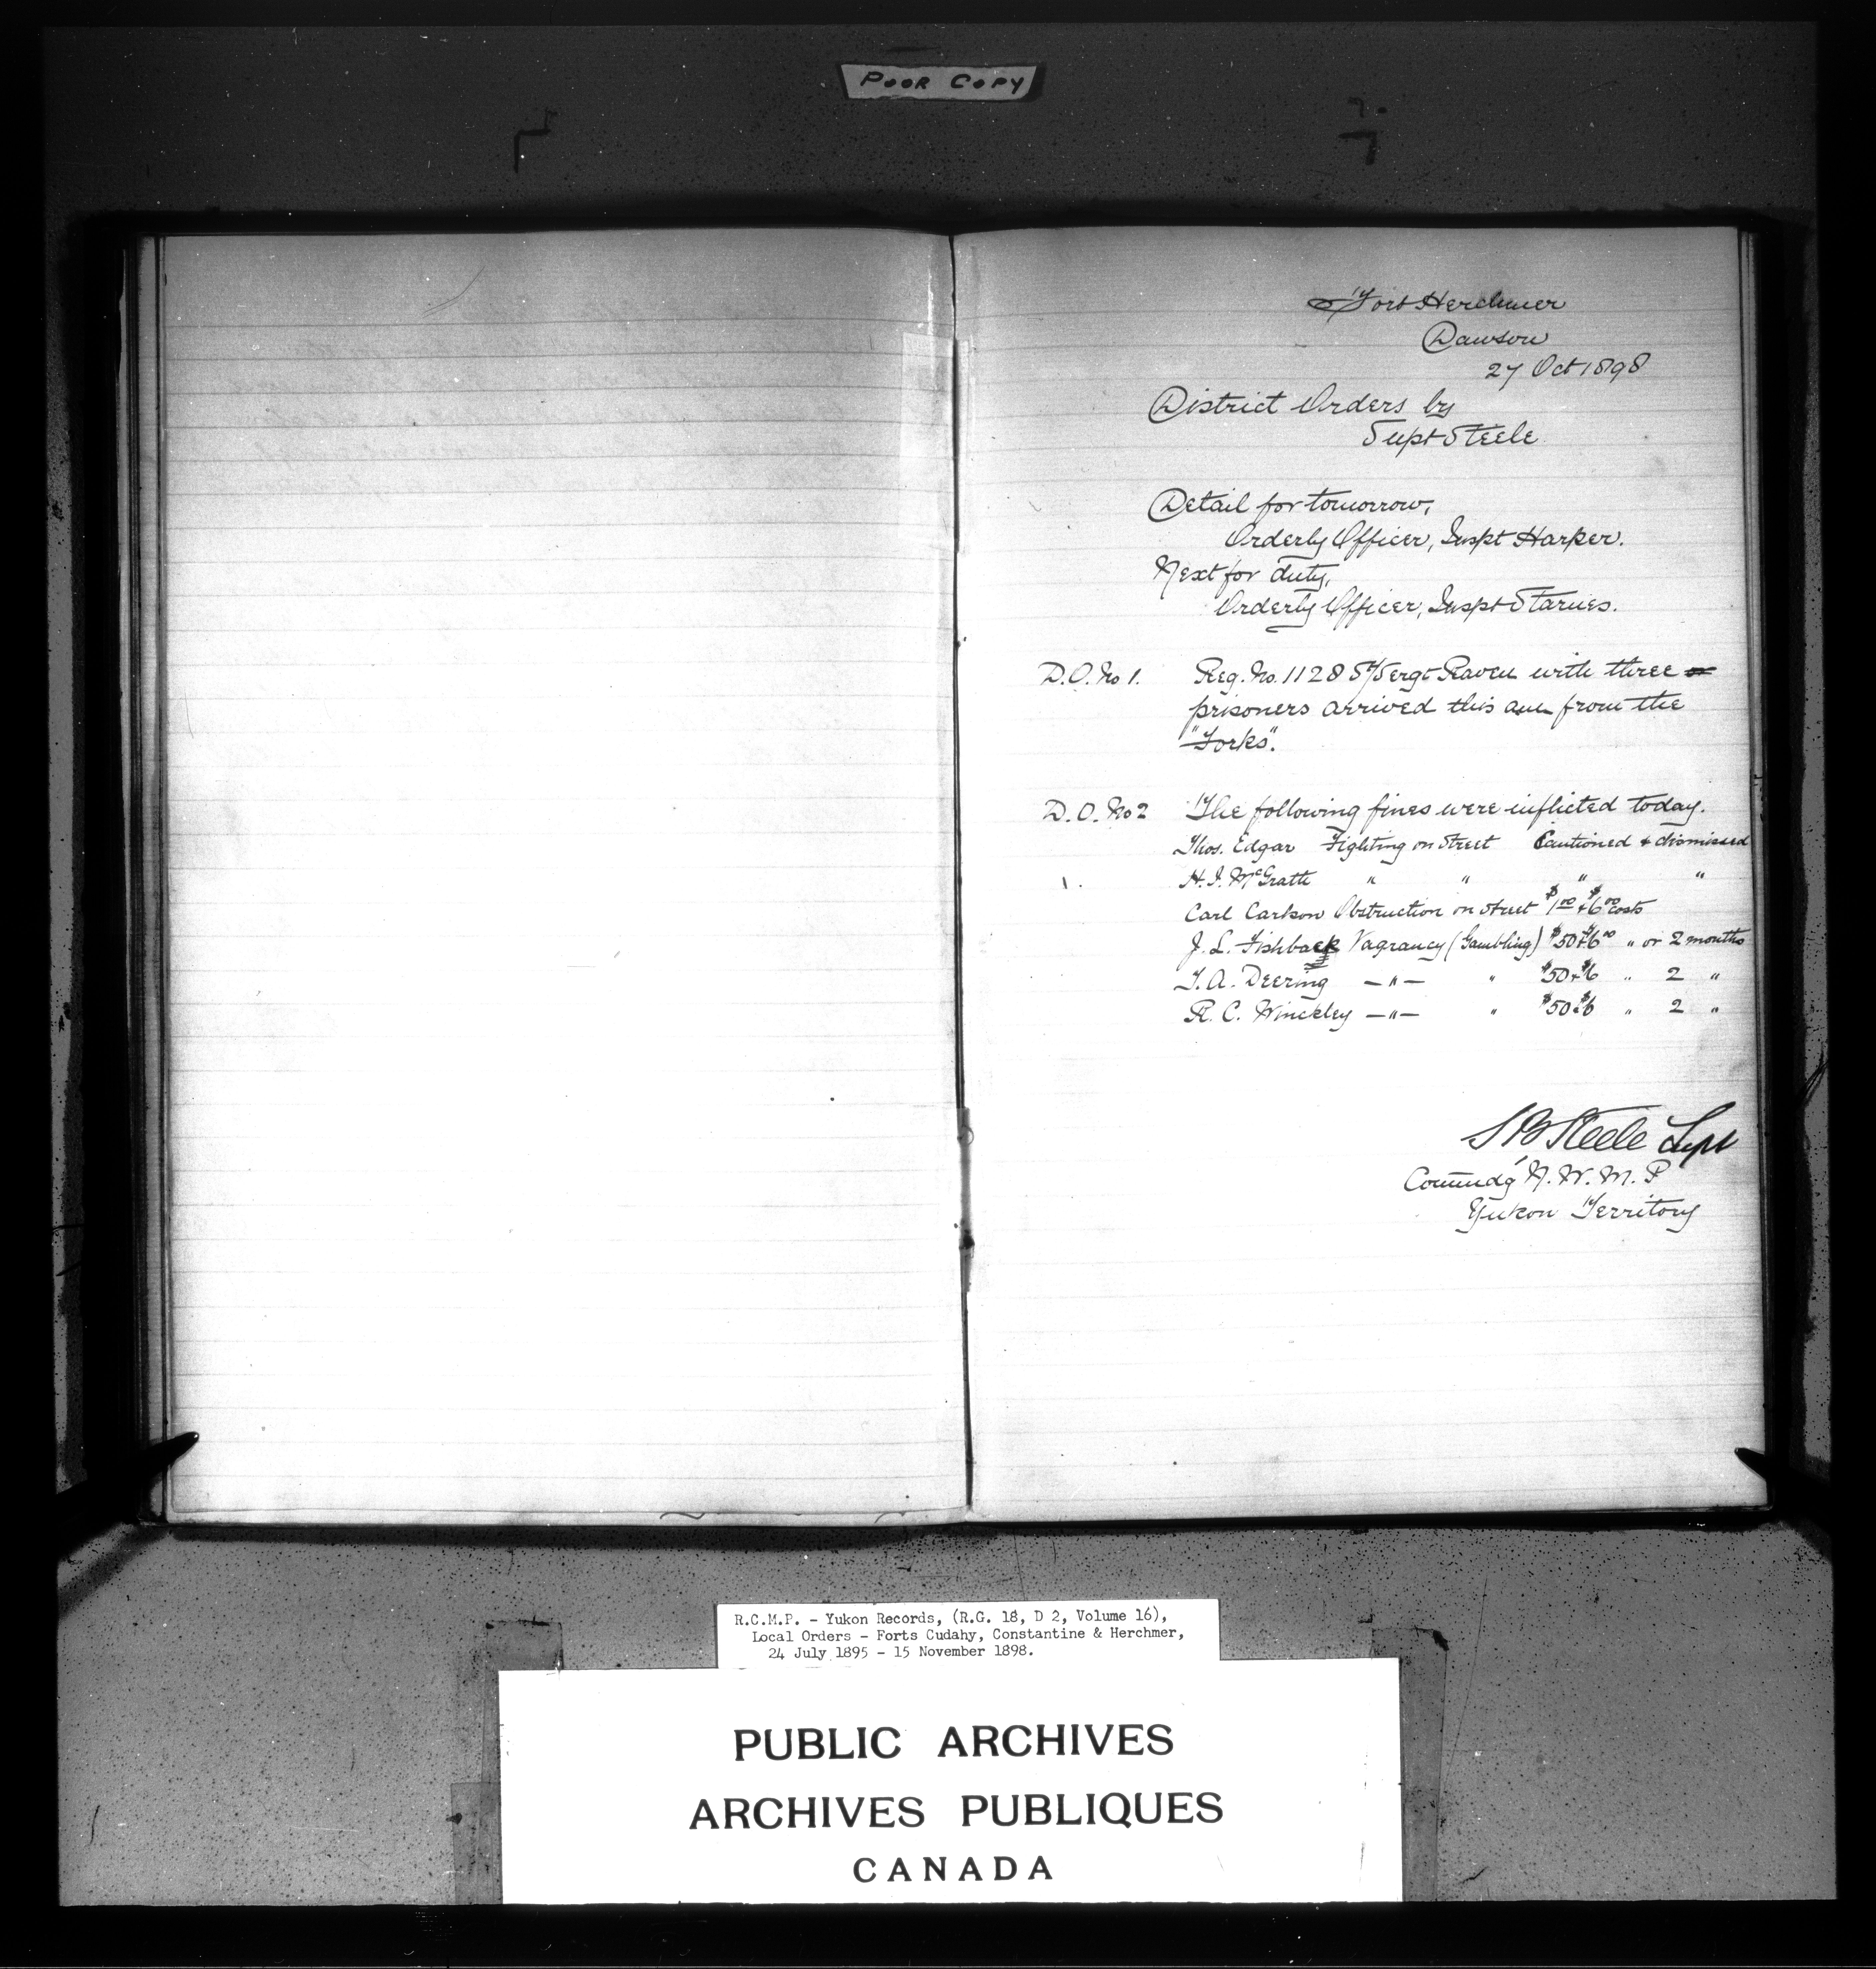 POOR COPY
Fort Herchmer
Dawson
27 Oct 1898
District Orders by
Supt Steele
Detail for tomorrow,
Orderly Officer, Inspt Harper.
Next for duty,
Orderly Officer, Inspt Starnes.
D.O. No 1. Reg. No. 1128 S/Sergt Raven with three
prisoners arrived this am from the
"Forks".
D.O. No 2 The following fines were inflicted today.
Thos. Edgar Fighting on Street Cautioned & dismissed
H.I. McGrath " " " "
Carl Carlson Obstruction on Street $1.00 & $6.00 costs
J.L. Fishback Vagrancy (Gambling) $50 & $6.00 " or 2 months
T.A. Deering —"— " $50 & $6 " 2 "
R.C. Winckley —"— " $50 & $6 " 2 "
S B Steele Supt
Commdg N.W.M.P
Yukon Territory
R.C.M.P. - Yukon Records, (R.G. 18, D 2, Volume 16),
Local Orders - Forts Cudahy, Constantine & Herchmer,
24 July 1895 - 15 November 1898.
PUBLIC ARCHIVES
ARCHIVES PUBLIQUES
CANADA